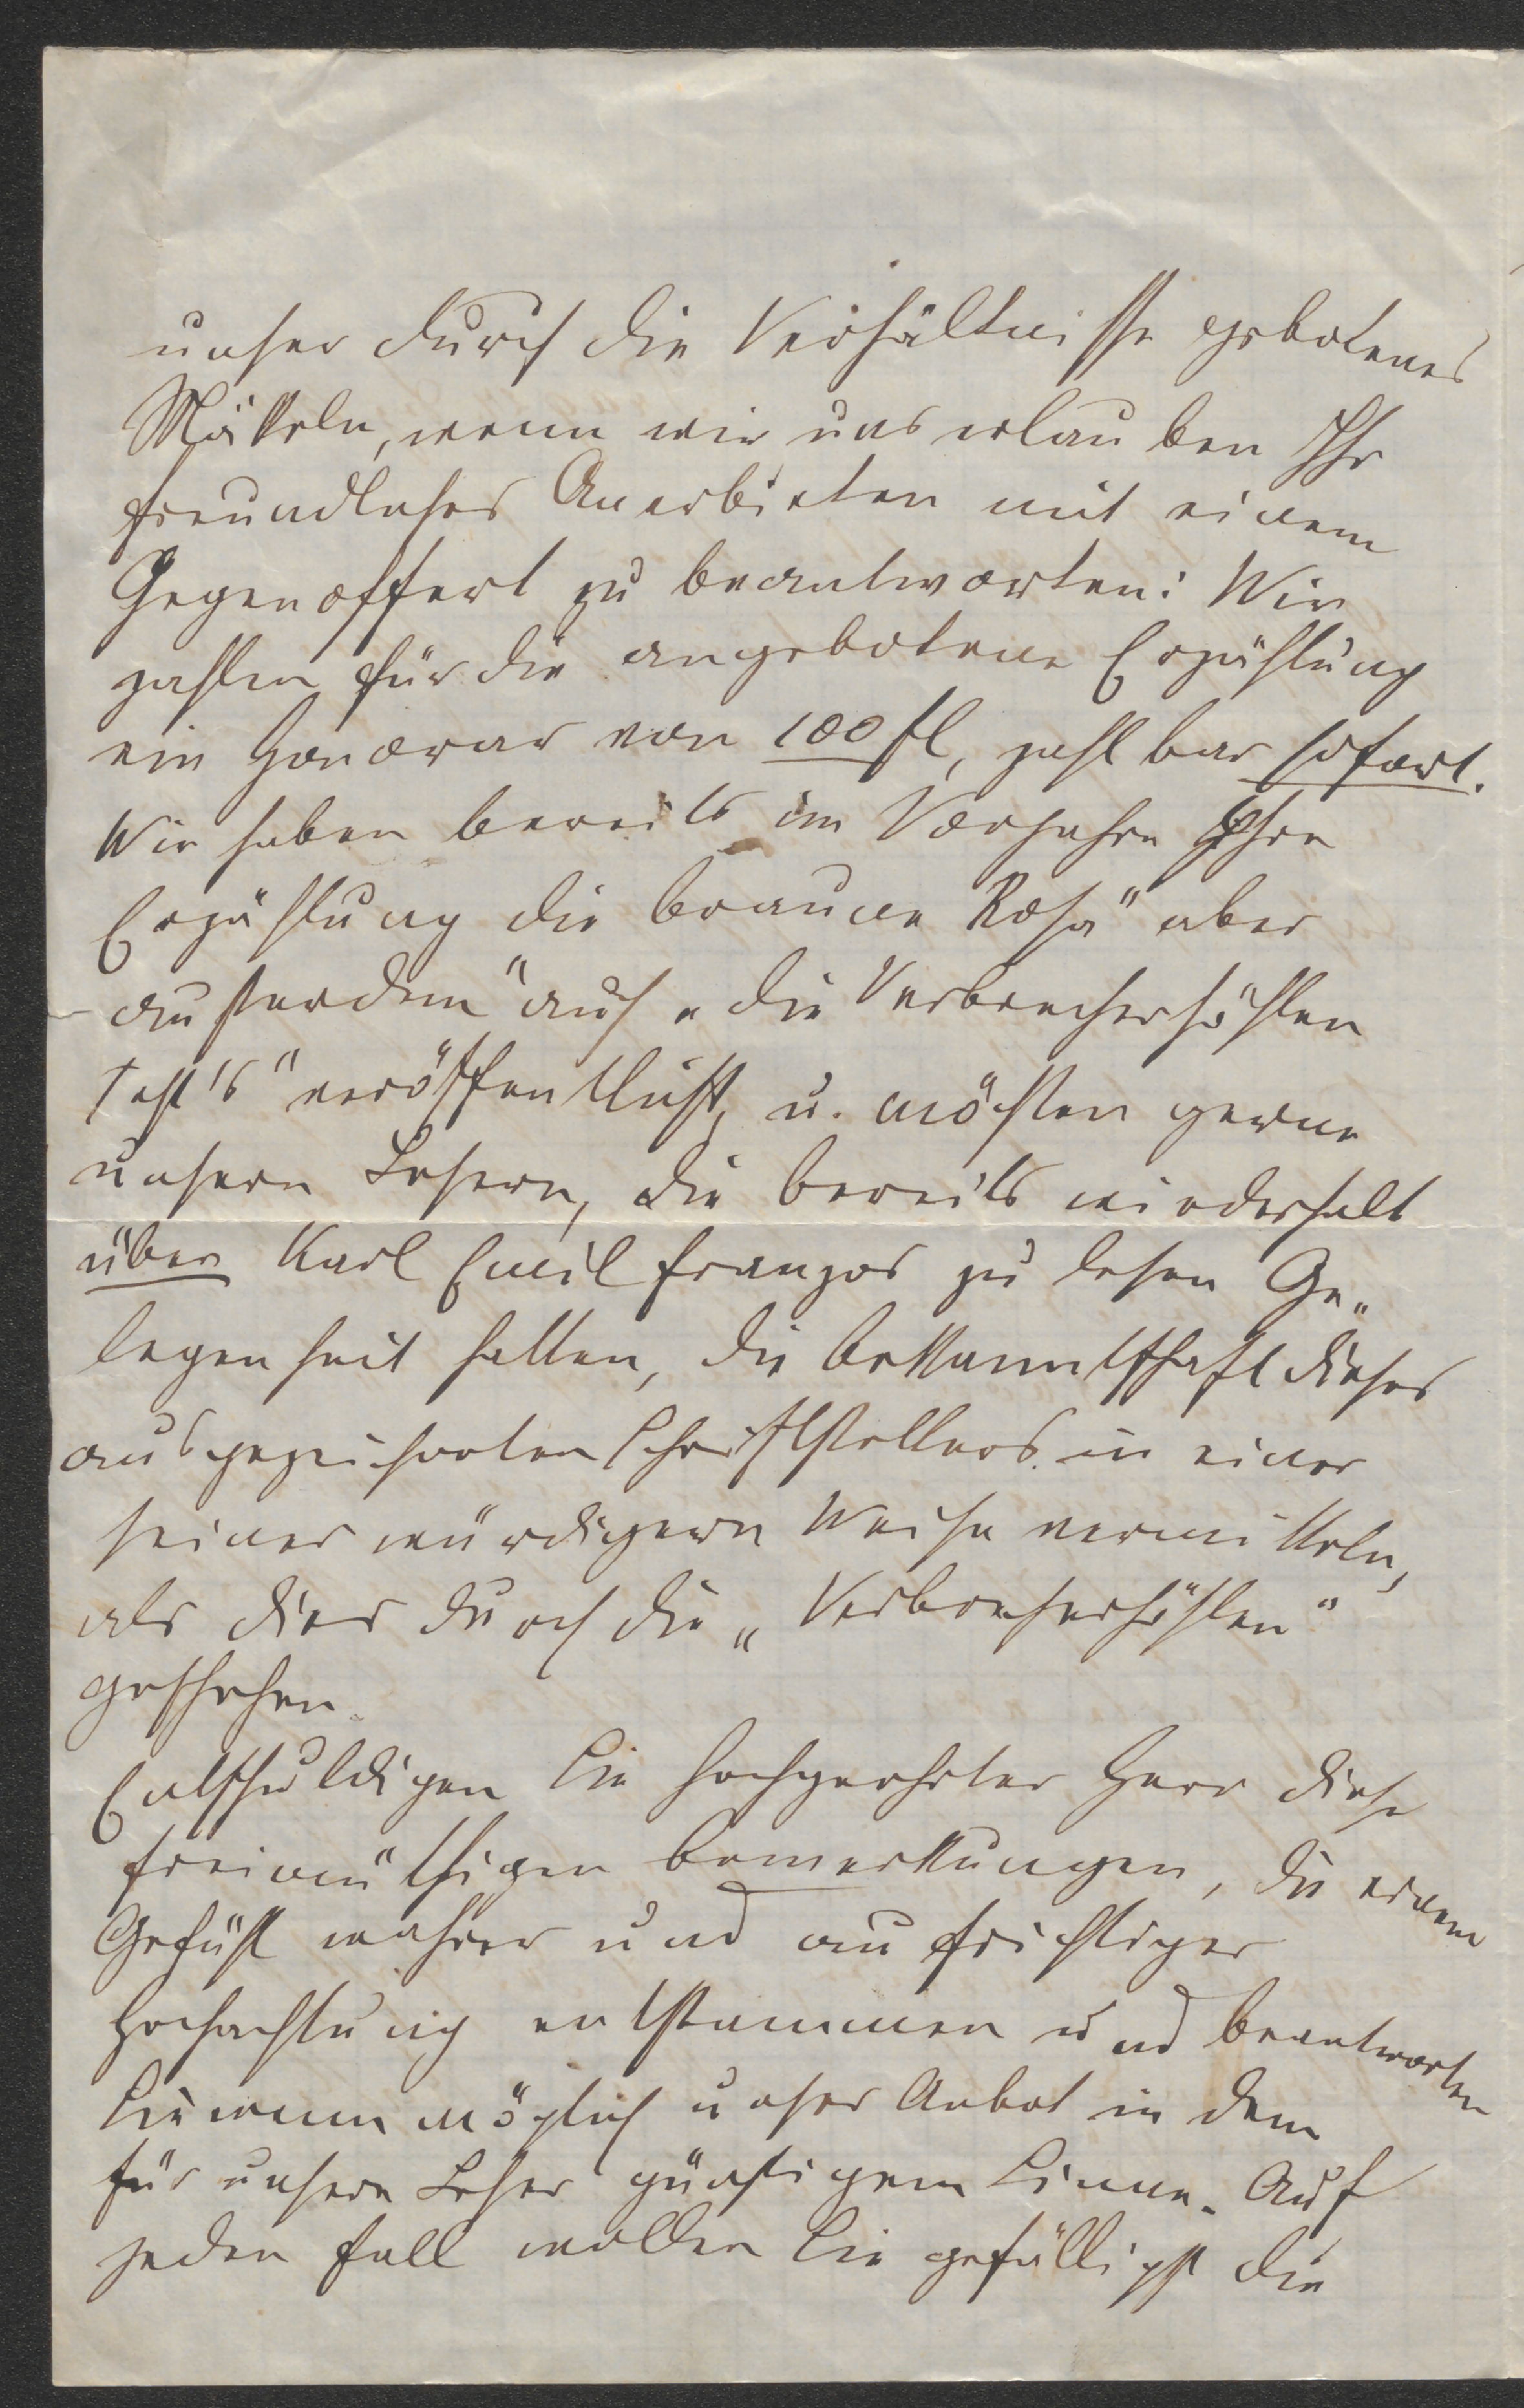 unser durch die Verhältnisse gebotenes
Mäkeln, wenn wir uns erlauben Ihr
freundliches Anerbieten mit einem
Gegenoffert zu beantworten: Wir
zahlen für die angebotene Erzählung
ein Honorar von 100 fl, zahlbar sofort.
Wir haben bereits im Vorjahre Ihre
Erzählung die braune Rosa" aber
außerdem" auch „die Verbrecherhöhlen
Pest's" veröffentlicht, u. möchten gerne
unsern Lesern, die bereits wiederholt
über Karl Emil Franzos zu lesen Ge„
legenheit hatten, die Bekanntschaft dieses
ausgezeichneten Schriftstellers in einer
seiner würdigern Weise vermitteln,
als dies durch die „Verbrecherhöhlen"
geschehen.
Entschuldigen Sie hochgeehrter Herr diese
freimüthigen Bemerkungen, die einem
Gefühl wahrer und aufrichtiger
Hochachtung entstammen und beantworten
Sie wenn möglich unser Anbot in dem
für unsere Leser günstigem Sinne. Auf
jeden Fall wollen Sie gefälligst die